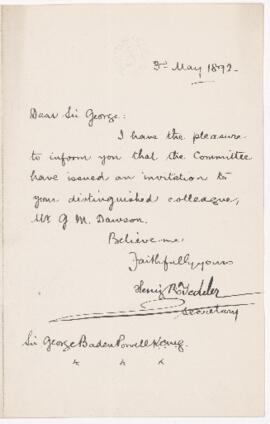 3rd May 1892.
Dear Sir George:
I have the pleasure
to inform you that the Committee
have issued an invitation to
your distinguished colleague,
Mr G. M. Dawson.
Believe me
Faithfully yours
Henry R. Tedder
Secretary
Sir George Baden Powell K.C.M.G.